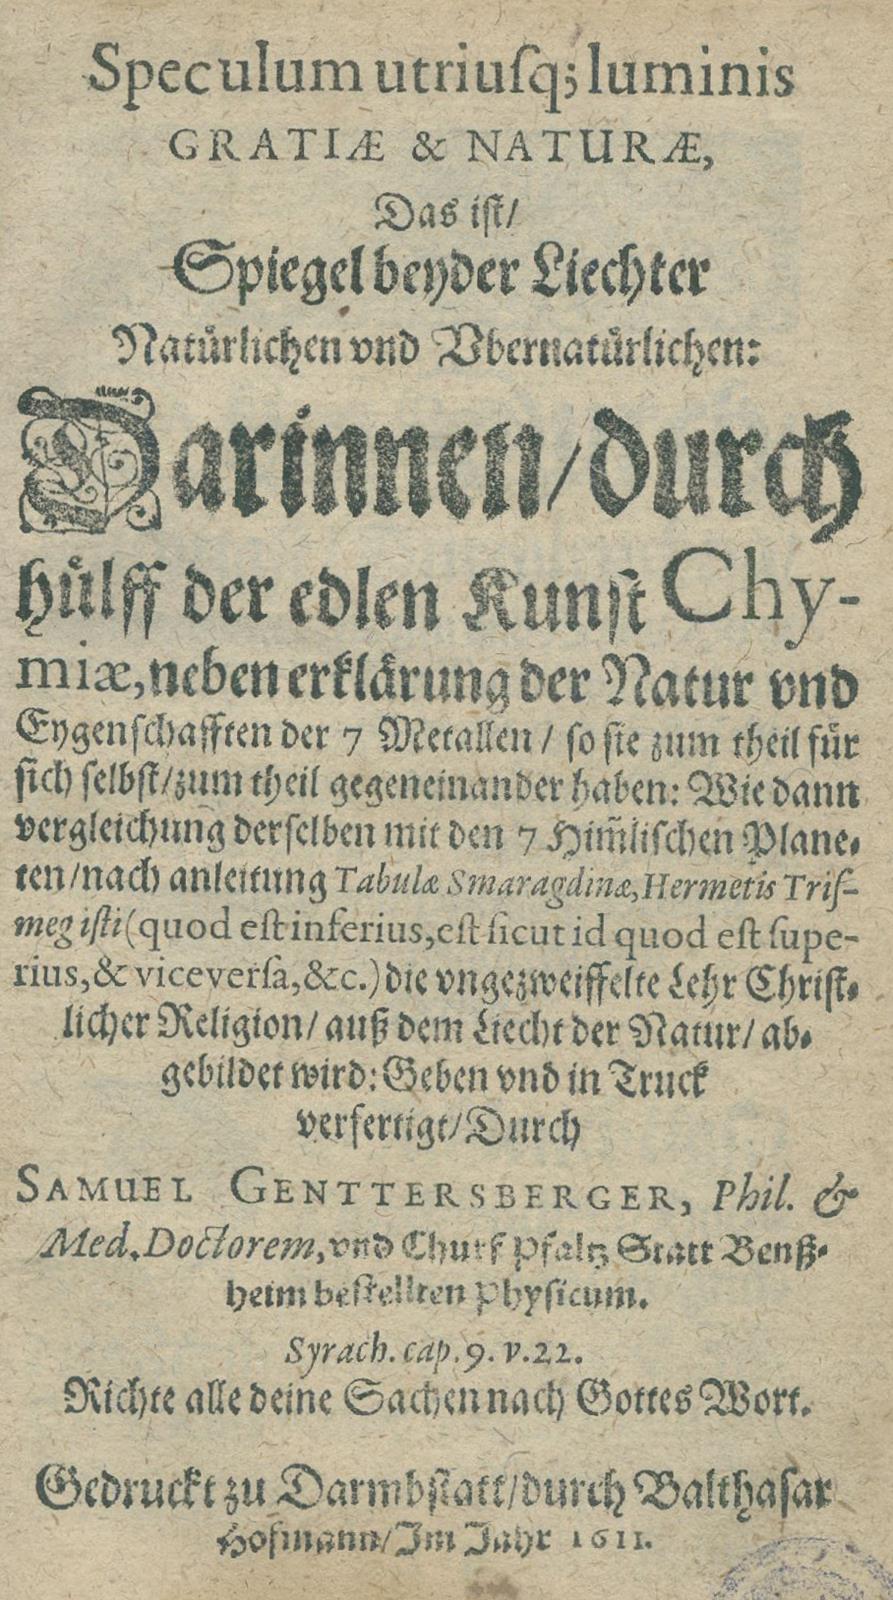 Speculum utriuſq; luminis
GRATIÆ & NATURÆ,
Das iſt/
Spiegel beyder Liechter
Natuͤrlichen vnd Vbernatuͤrlichen:
Darinnen/durch
huͤlff der edlen Kunſt Chy-
miæ, neben erklaͤrung der Natur vnd
Eygenſchafften der 7 Metallen/ ſo ſie zum theil fuͤr
ſich ſelbſt/zum theil gegeneinander haben: Wie dann
vergleichung derſelben mit den 7 Him̃liſchen Plane-
ten/nach anleitung Tabulæ Smaragdinæ, Hermetis Triſ-
megiſti (quod eſt inferius, eſt ſicut id quod eſt ſupe-
rius, & viceverſâ, &c.) die vngezweiffelte Lehr Chriſt-
licher Religion/ auß dem Liecht der Natur/ ab-
gebildet wird: Geben vnd in Truck
verfertigt/Durch
SAMUEL GENTTERSBERGER, Phil. &
Med. Doctorem, vnd Churf Pfaltz Statt Benß-
heim beſtellten Phyſicum.
Syrach. cap. 9. v. 22.
Richte alle deine Sachen nach Gottes Wort.
Gedruckt zu Darmbſtatt/durch Balthaſar
Hofmann/Im Jahr 1611.